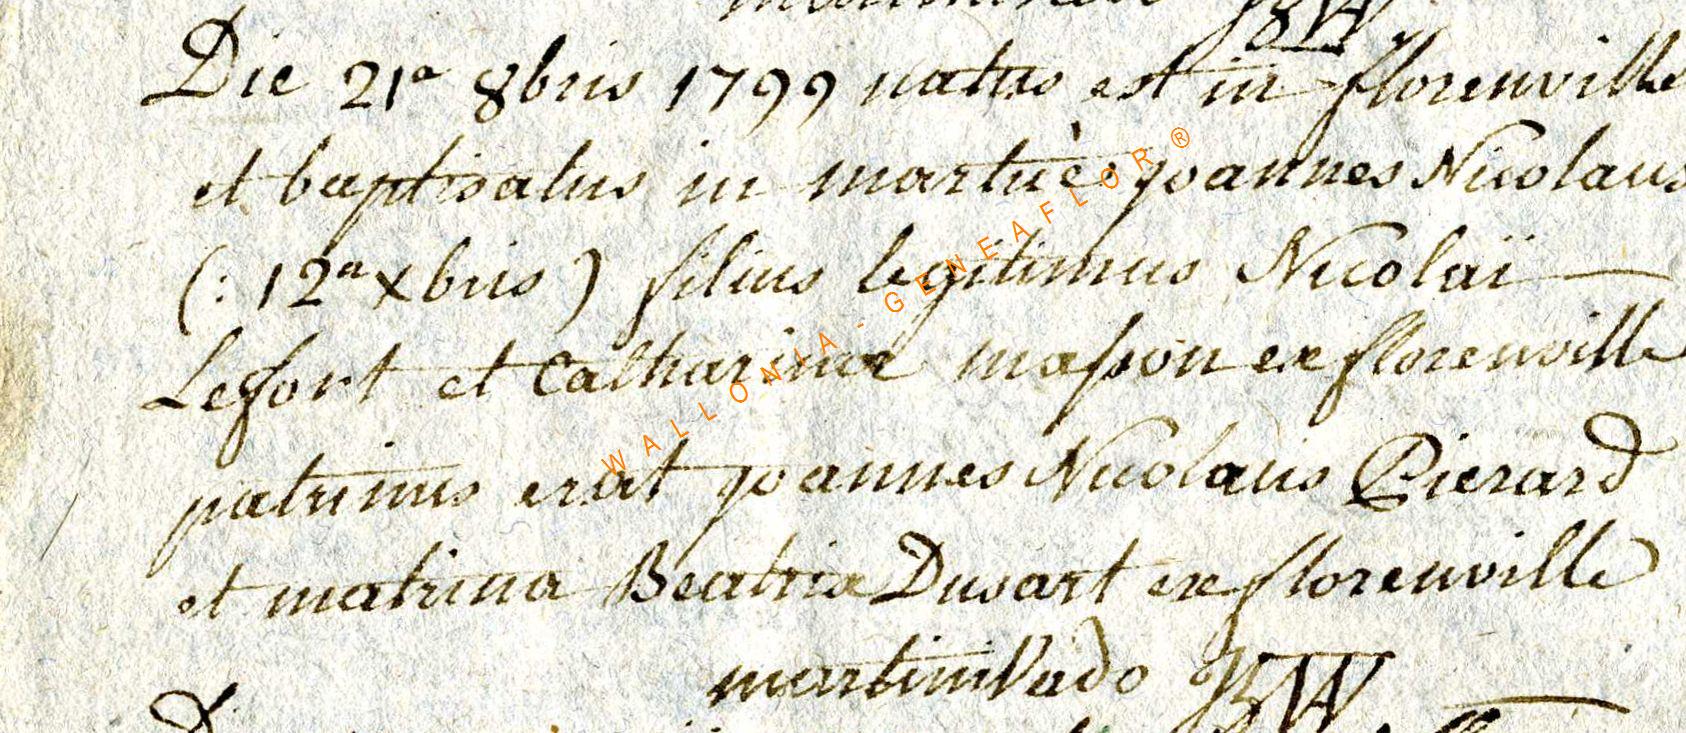 Die 21a 8bris 1799 natus est in florenville
et baptisatus in martuè joannes Nicolaus
(: 12a xbris ) filius legitimus Nicolaï
Lefort et Catharinae masson ex florenville
patrinus erat joannes Nicolaus Pierard
et matrina Beatrix Dusart ex florenville
WALLONIA - GENEAFLOR ®